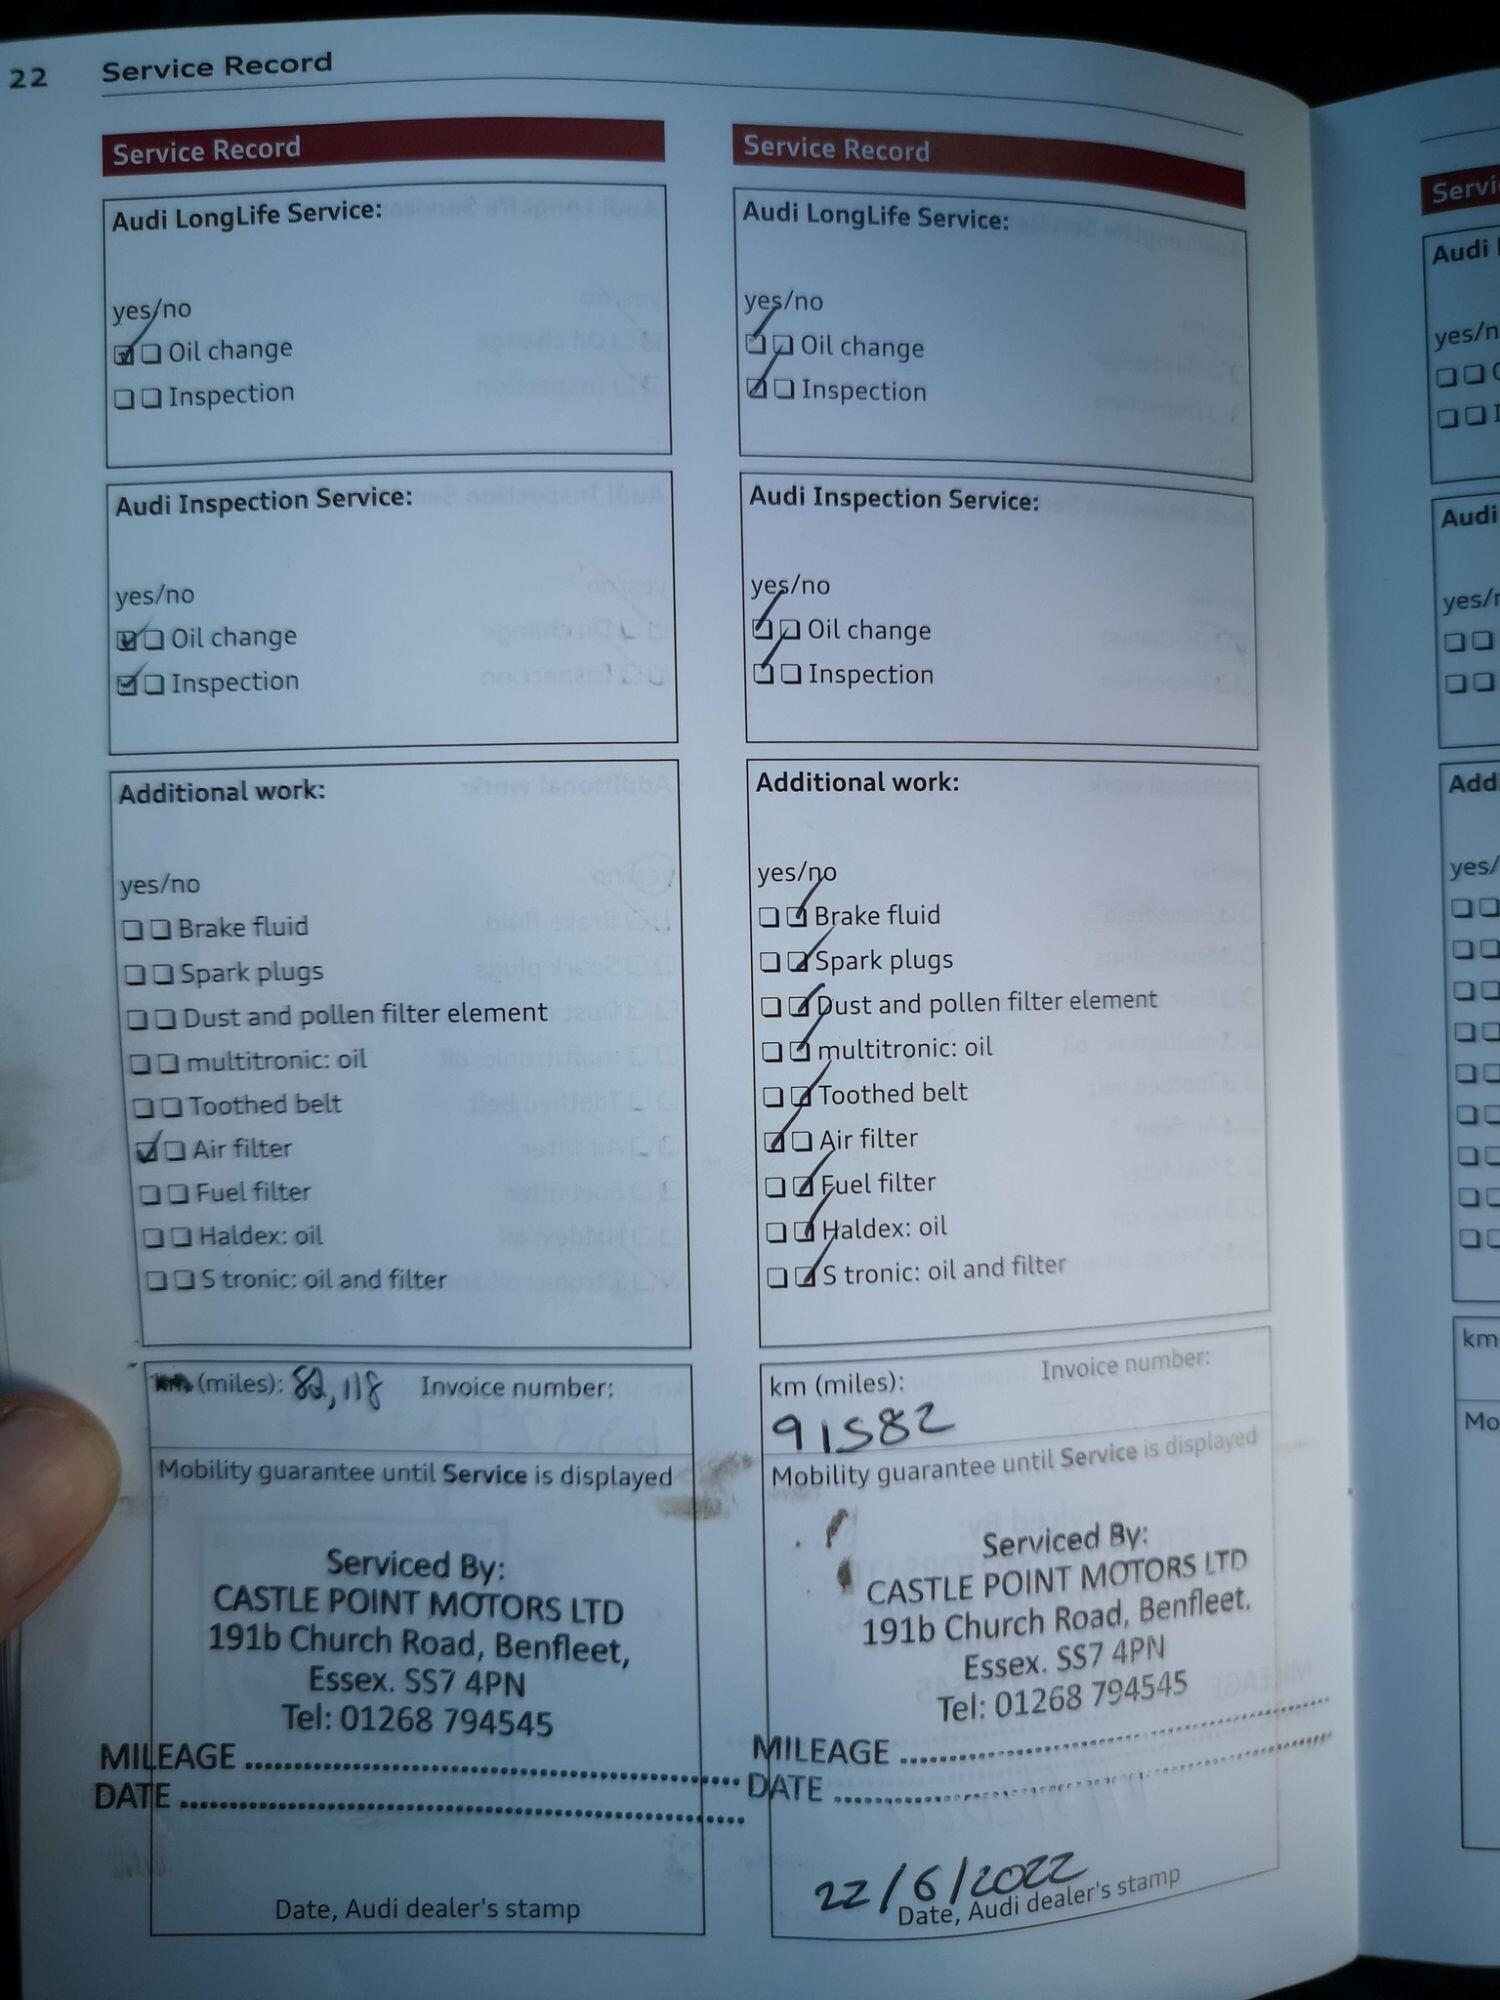 22 Service Record
Service Record
Audi LongLife Service:
yes/no
Oil change
Inspection
Audi Inspection Service:
yes/no
Oil change
Inspection
Additional work:
yes/no
Brake fluid
Spark plugs
Dust and pollen filter element
multitronic: oil
Toothed belt
Air filter
Fuel filter
Haldex: oil
S tronic: oil and filter
km (miles): 82,118 Invoice number:
Mobility guarantee until Service is displayed
Serviced By:
CASTLE POINT MOTORS LTD
191b Church Road, Benfleet,
Essex. SS7 4PN
Tel: 01268 794545
MILEAGE
DATE
Date, Audi dealer's stamp
Service Record
Audi LongLife Service:
yes/no
Oil change
Inspection
Audi Inspection Service:
yes/no
Oil change
Inspection
Additional work:
yes/no
Brake fluid
Spark plugs
Dust and pollen filter element
multitronic: oil
Toothed belt
Air filter
Fuel filter
Haldex: oil
S tronic: oil and filter
km (miles): Invoice number:
91582
Mobility guarantee until Service is displayed
Serviced By:
CASTLE POINT MOTORS LTD
191b Church Road, Benfleet.
Essex. SS7 4PN
Tel: 01268 794545
MILEAGE
DATE
22/6/2022
Date, Audi dealer's stamp
Audi
Audi
km